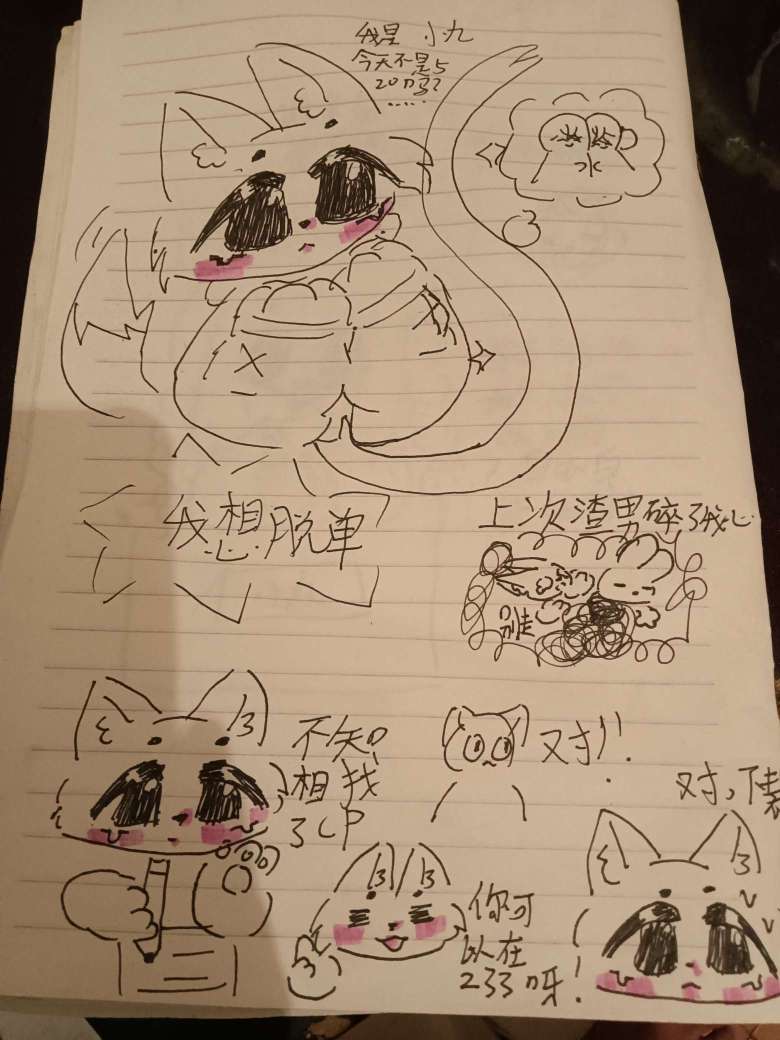 我是 小九
今天不是5
20吗?
……
水
我想脱单
上次渣男碎了我心
别走
不知
相找
CP
对!!
你可
以在
233呀!
对,